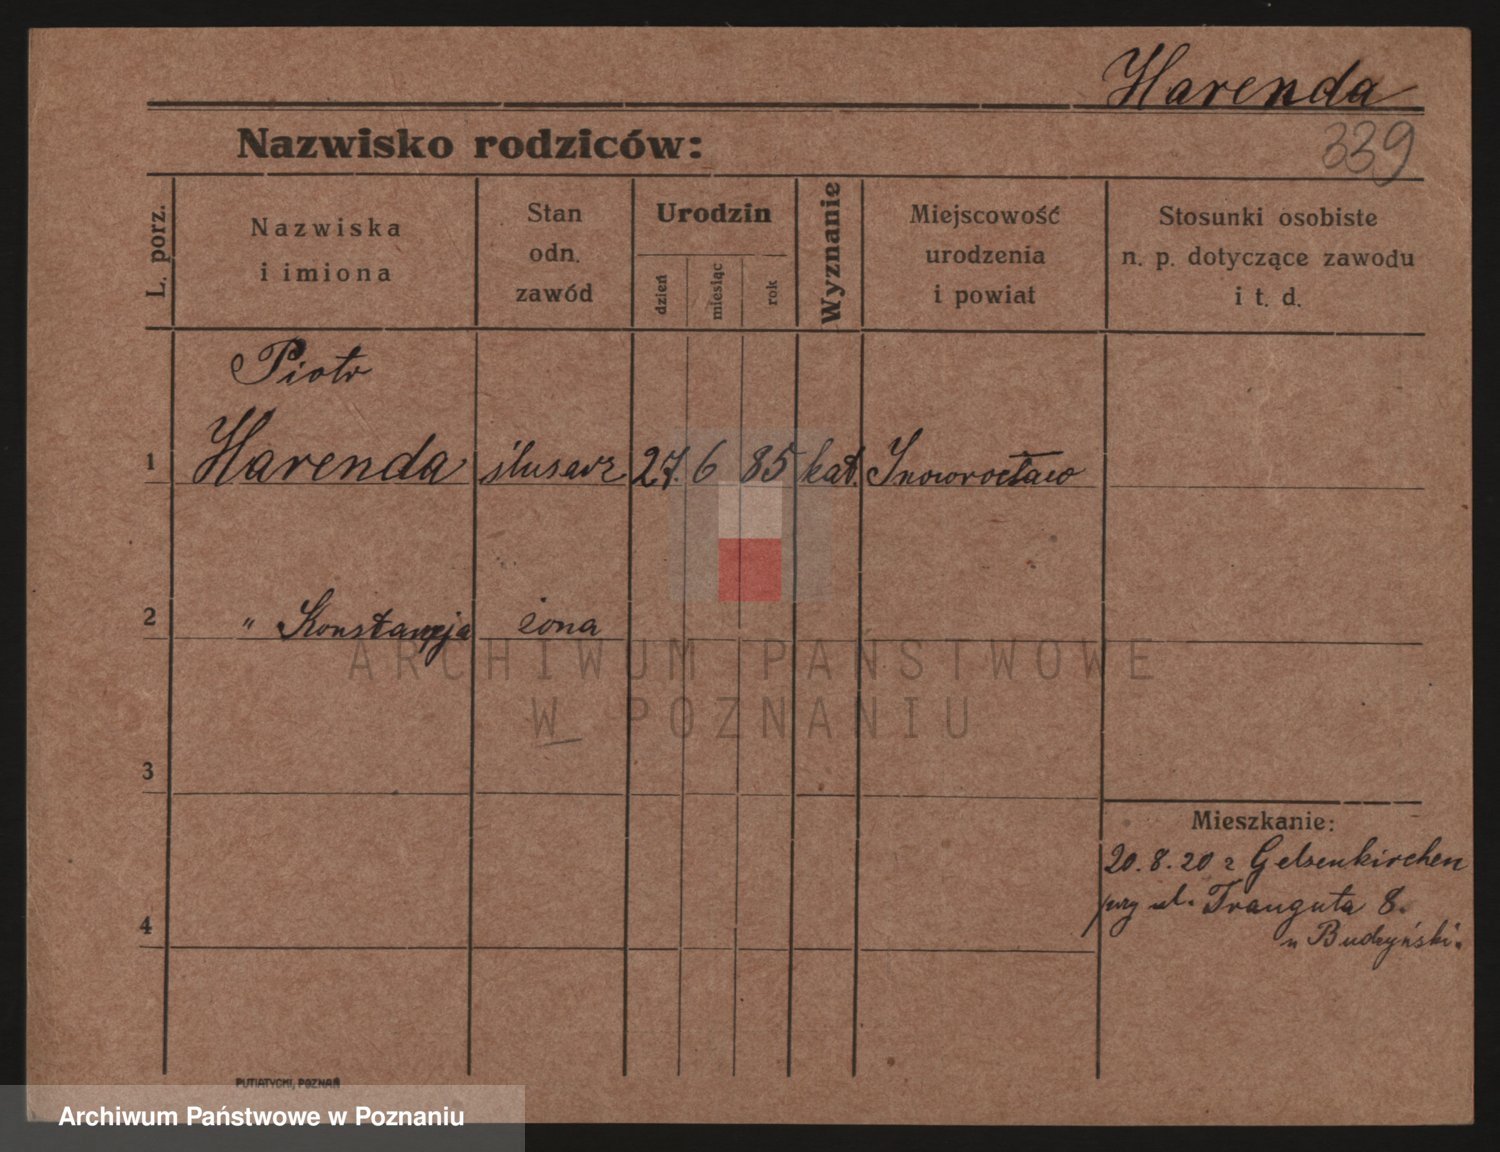 Harenda
339
Nazwisko rodziców:
L. porz.
Nazwiska
i imiona
Stan
odn.
zawód
Urodzin
dzień
miesiąc
rok
Wyznanie
Miejscowość
urodzenia
i powiat
Stosunki osobiste
n. p. dotyczące zawodu
i t. d.
Piotr
1 Harenda ślusarz 27. 6 85 kat. Inowrocław
2 " Konstancja żona
ARCHIWUM PAŃSTWOWE
W POZNANIU
3
Mieszkanie:
20.8.20 z Gelsenkirchen
przy ul. Trauguta 8.
4
u Budzyński.
PUTIATYCKI, POZNAŃ
Archiwum Państwowe w Poznaniu